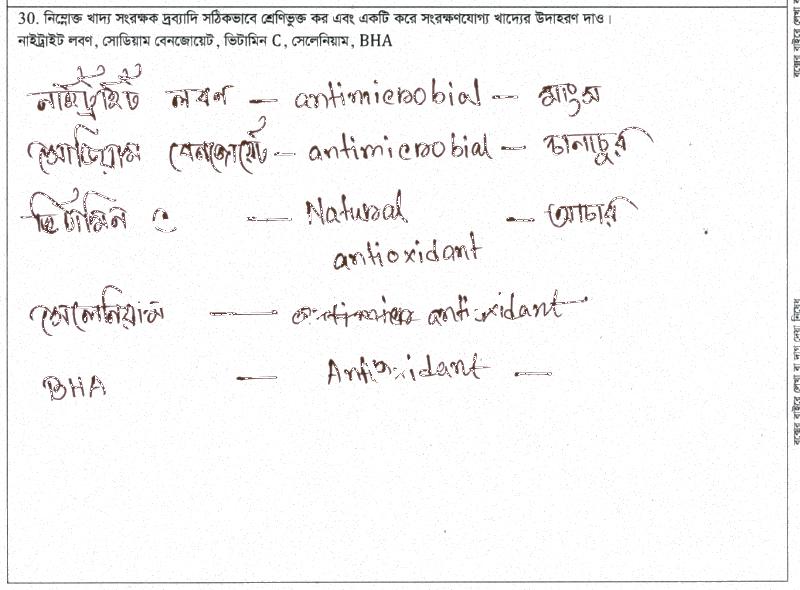 30. নিম্নোক্ত খাদ্য সংরক্ষক দ্রব্যাদি সঠিকভাবে শ্রেণিভুক্ত কর এবং একটি করে সংরক্ষণযোগ্য খাদ্যের উদাহরণ দাও।
নাইট্রাইট লবণ, সোডিয়াম বেনজোয়েট, ভিটামিন C, সেলেনিয়াম, BHA
নাইট্রাইট লবণ — antimicrobial — মাংস
সোডিয়াম বেনজোয়েট — antimicrobial — চানাচুর
ভিটামিন C — Natural — আচার
antioxidant
সেলেনিয়াম — antioxidant
BHA — Antioxidant —